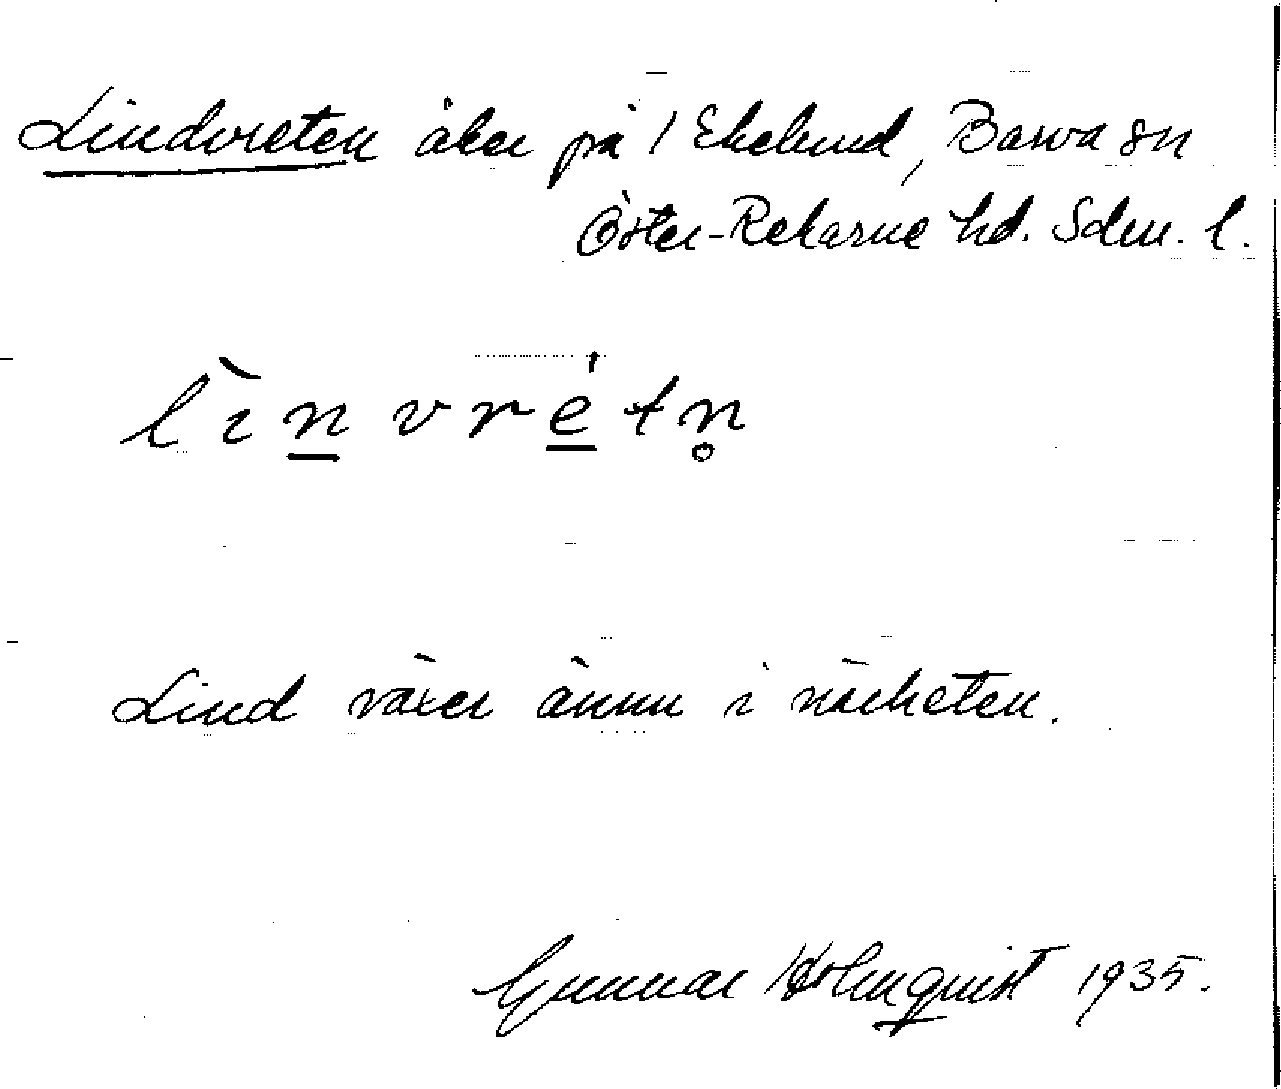 Lindvreten åker på 1 Ekelund, Barva sn
Öster-Rekarne hd. Sdm. l.
lìnvrétn̥
Lind växer ännu i närheten.
Gunnar Holmquist 1935.